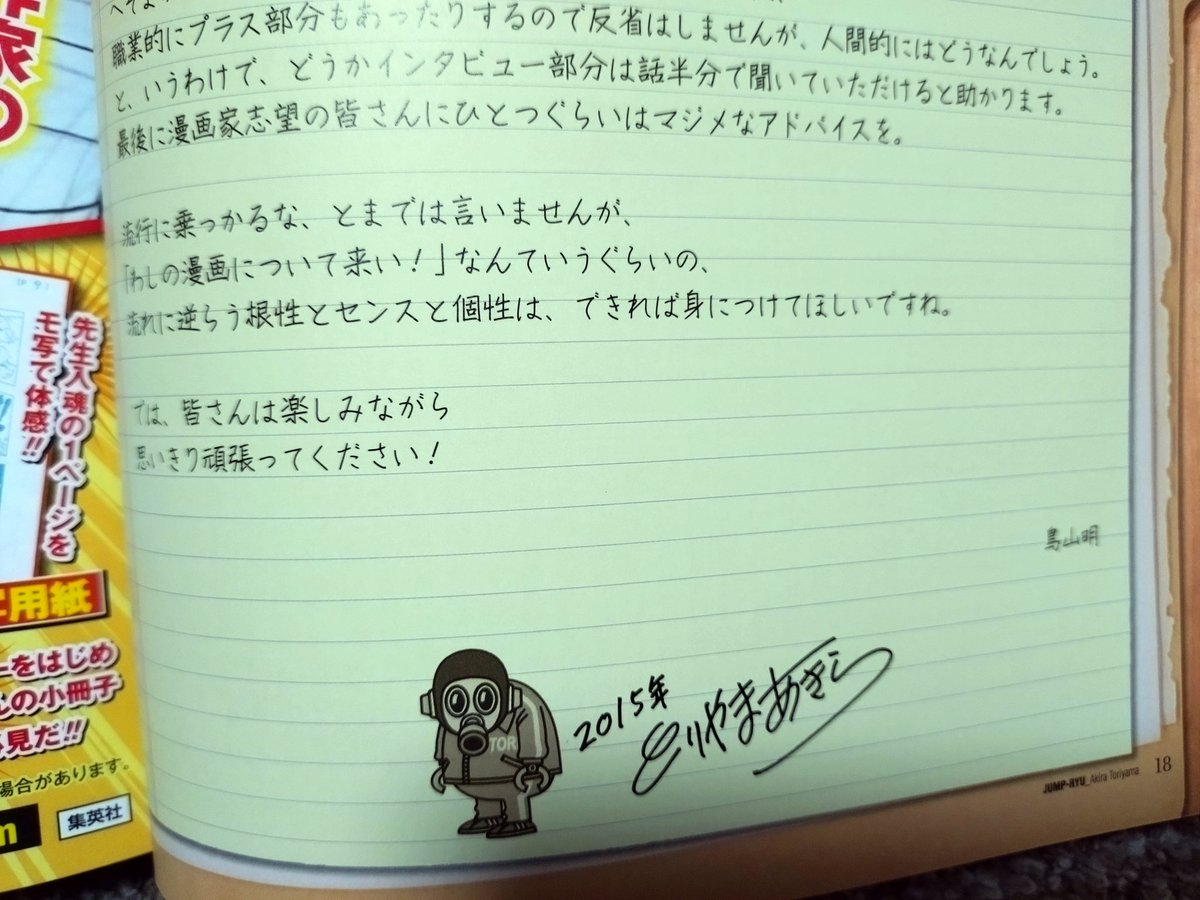 職業的にプラス部分もあったりするので反省はしませんが、人間的にはどうなんでしょう。
と、いうわけで、どうかインタビュー部分は話半分で聞いていただけると助かります。
最後に漫画家志望の皆さんにひとつぐらいはマジメなアドバイスを。
流行に乗っかるな、とまでは言いませんが、
「わしの漫画について来い!」なんていうぐらいの、
流れに逆らう根性とセンスと個性は、できれば身につけてほしいですね。
では、皆さんは楽しみながら
思いきり頑張ってください!
鳥山明
2015年
とりやまあきら
TOR
JUMP-RYU_Akira Toriyama 18
先生入魂の1ページを
モ写で体感!!
用紙
ーをはじめ
の小冊子
見だ!!
場合があります。
集英社